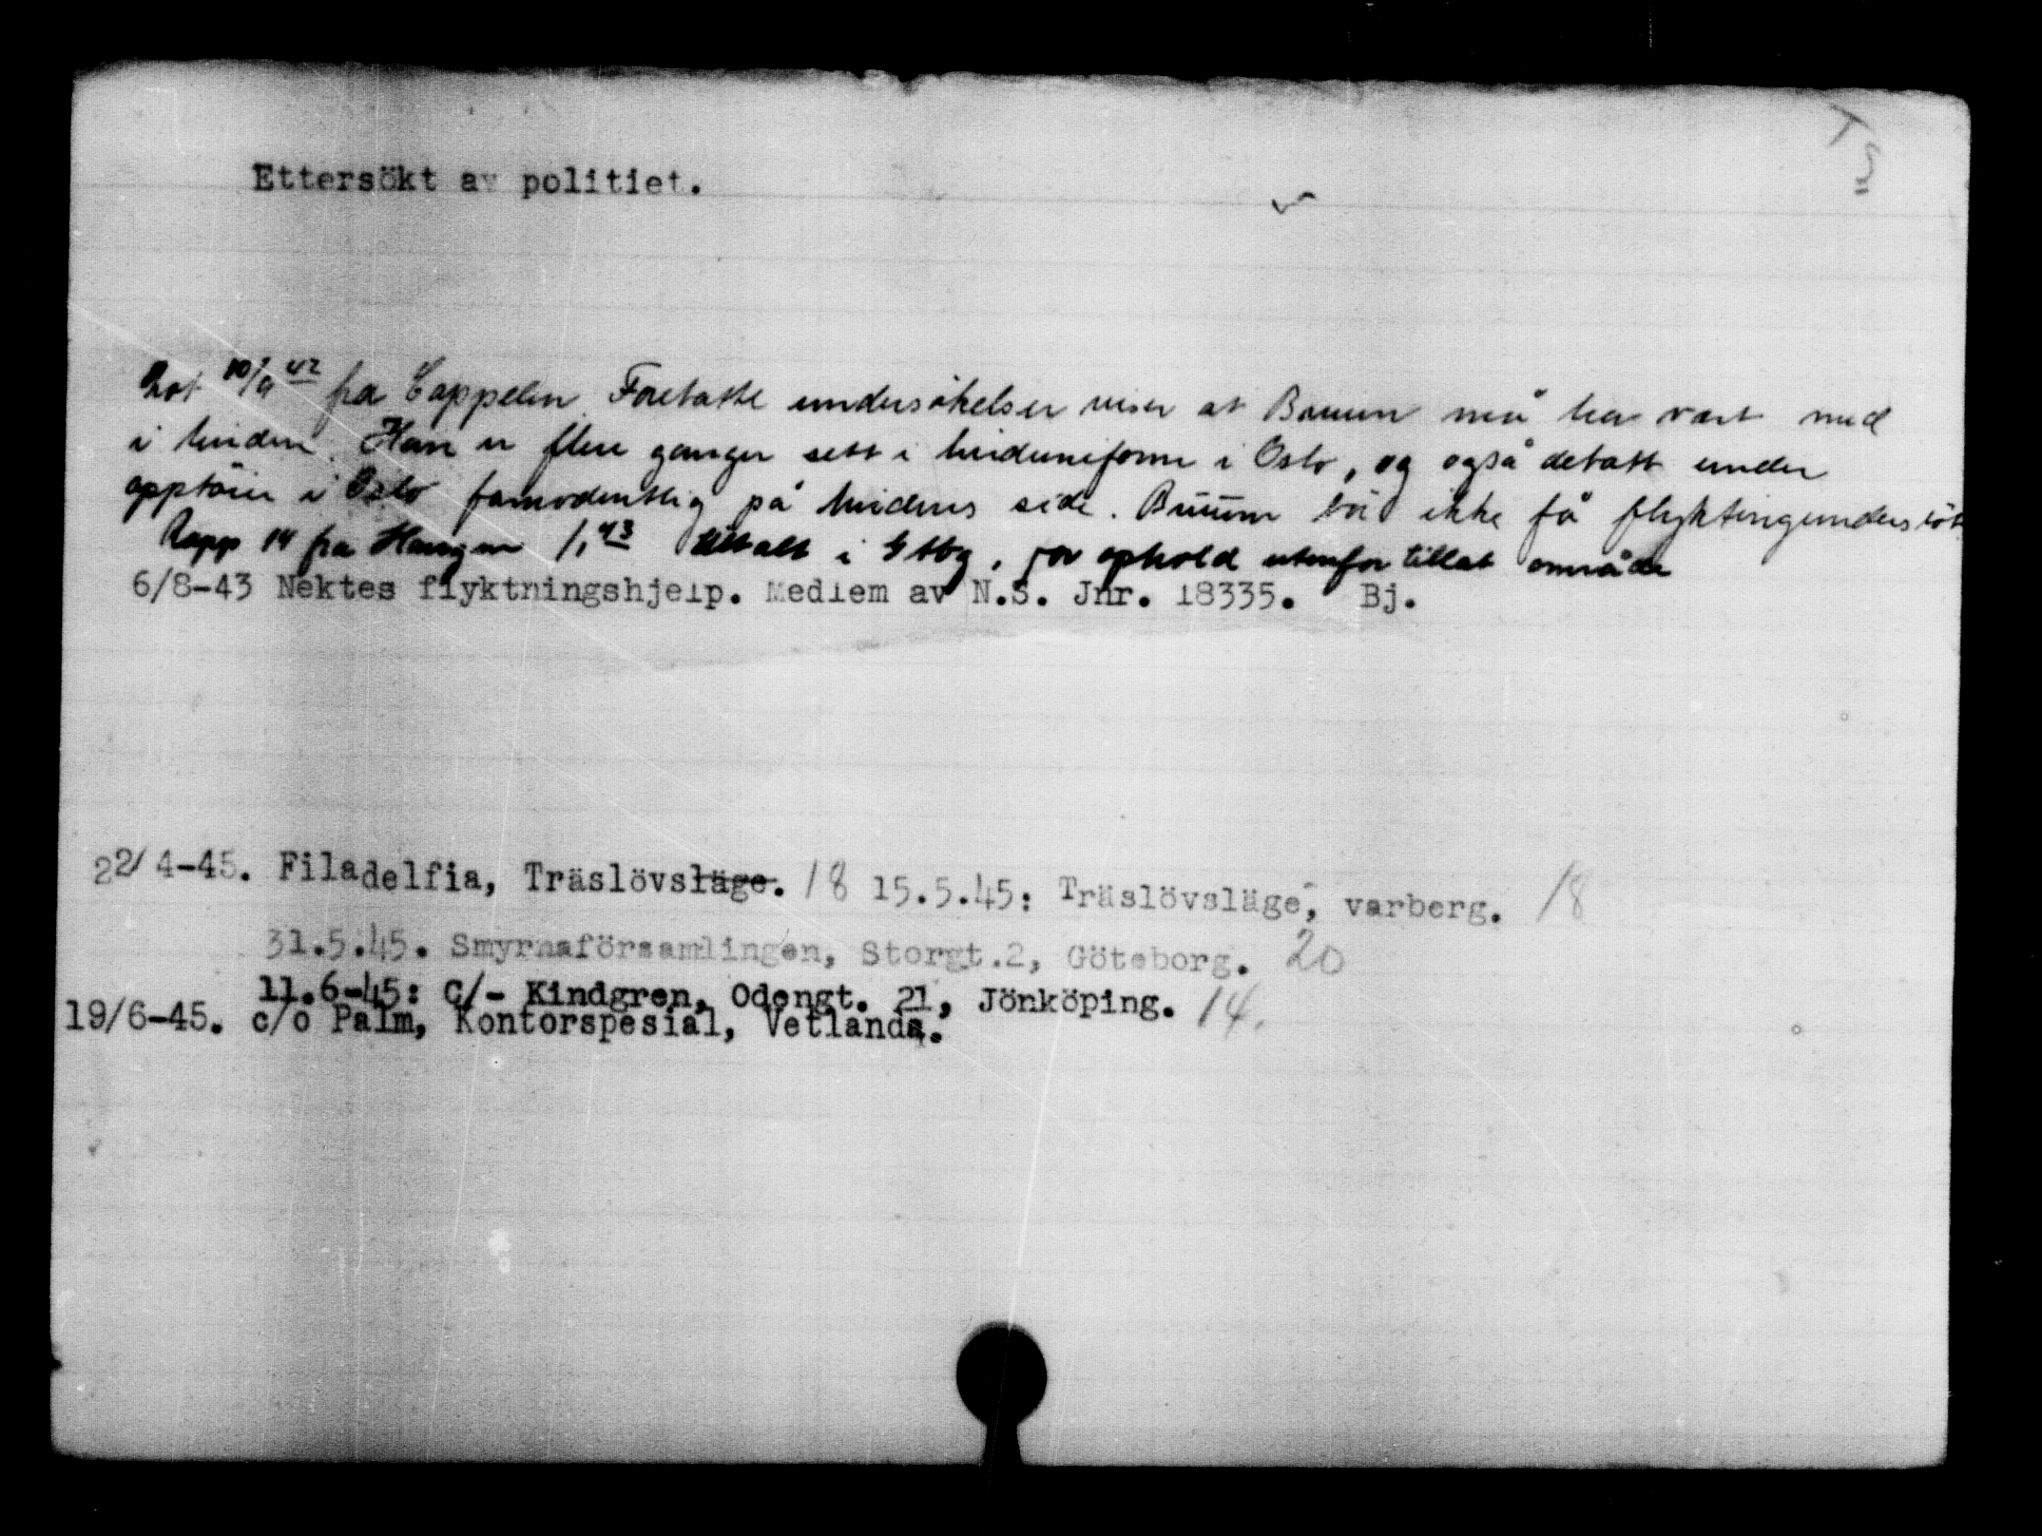 T 3
Ettersökt av politiet.
Not 10/9 42 fra Cappelen. Foretatte undersökelser viser at Buuun må ha vært med
i hirden. Han er flere ganger sett i hirduniform i Oslo, og også deltatt under
opptöier i Oslo formodentlig på hirdens side. Buuum bör ikke få flyktningunderstöt
Rapp 14 fra Haugen 1/1 43 uttalt i Gtbg, for ophold utenfor tillat område
6/8-43 Nektes flyktningshjelp. Medlem av N.S. Jnr. 18335. Bj.
22/4-45. Filadelfia, Träslövsläge. 18 15.5.45: Träslövsläge, varberg. 18
31.5.45. Smyrnaförsamlingen, Storgt.2, Göteborg. 20
11.6-45: C/- Kindgren, Odengt. 21, Jönköping. 14.
19/6-45. c/o Palm, Kontorspesial, Vetlanda.